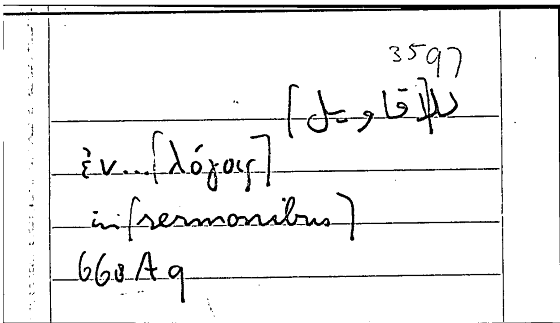 3597
لل[أقاويل]
ἐν...[λόγοις]
in [sermonibus]
668 A 9